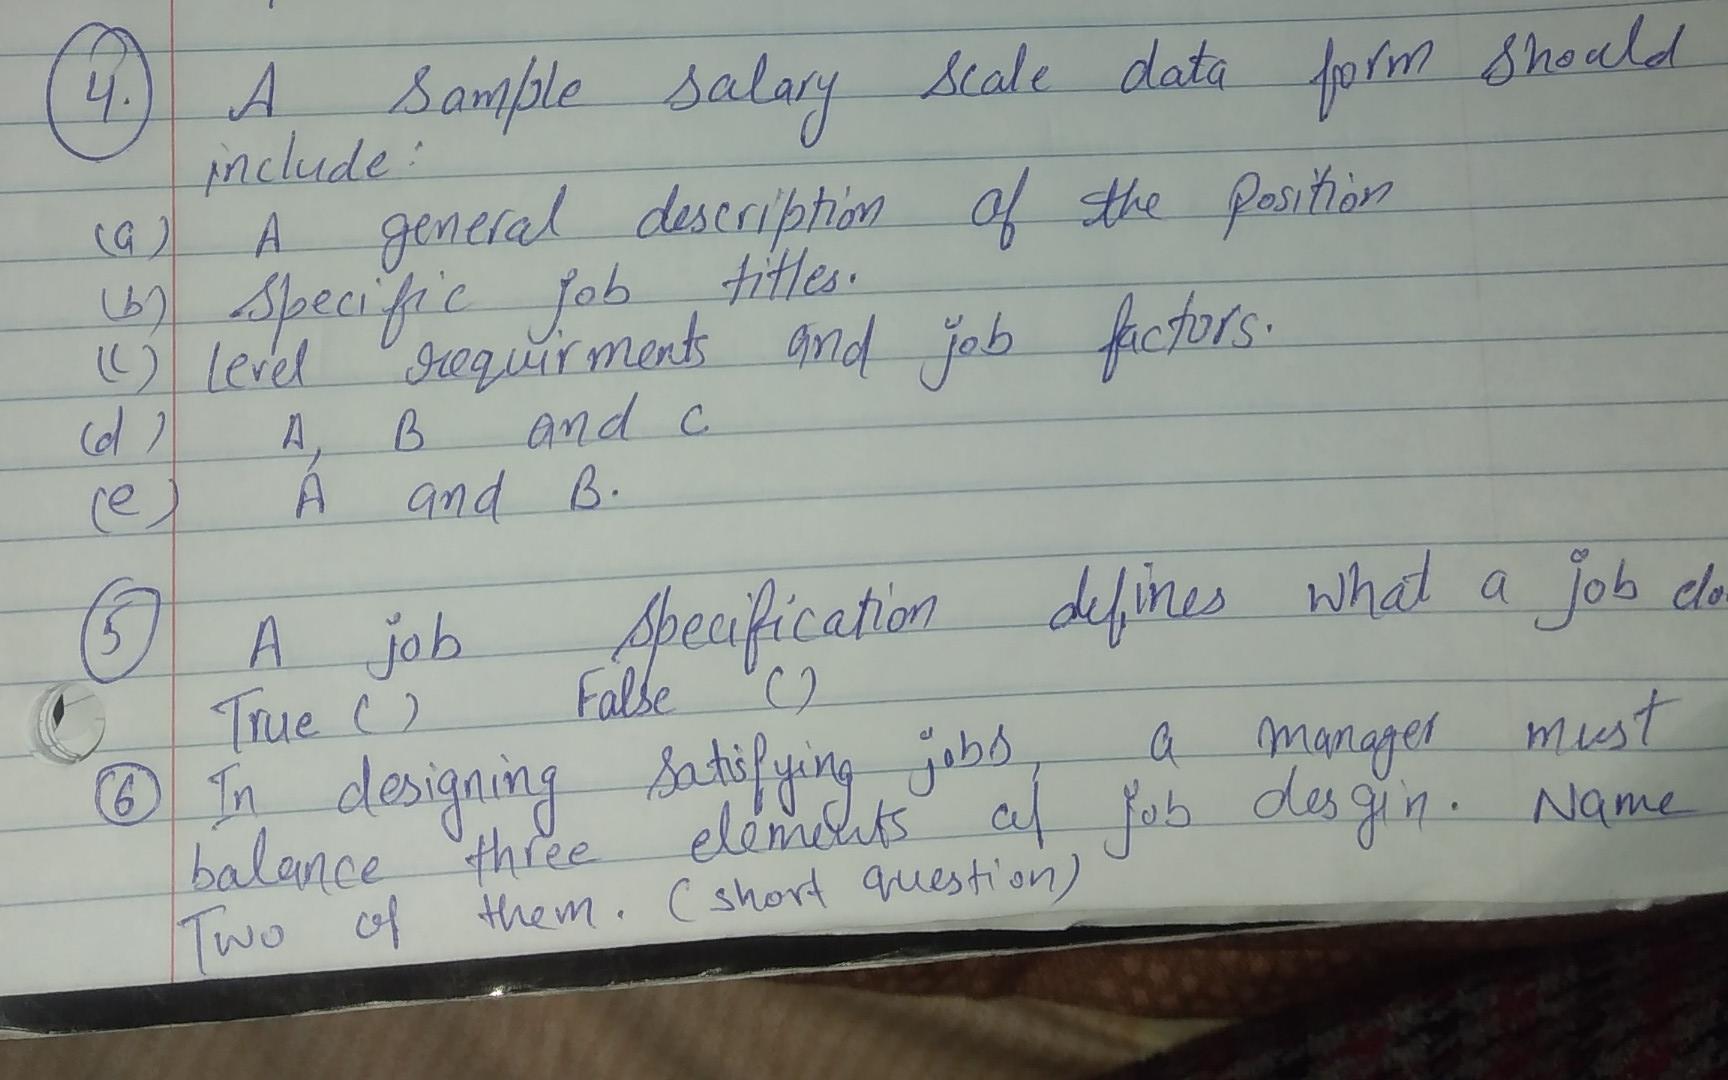 4. A sample salary scale data form should
include:
(a) A general description of the position
(b) specific job titles.
(c) level requirments and job factors.
(d) A, B and C
(e) A and B.
5 A job specification defines what a job do
True ( ) False ( )
6 In designing satisfying jobs, a manager must
balance three elements of job desgin. Name
Two of them. (short question)